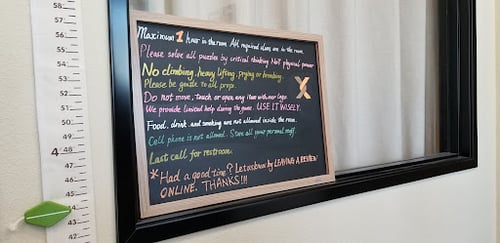 Maximum 1 hour in the room. All required clues are in the room.
Please solve all puzzles by critical thinking Not physical power
No climbing, heavy lifting, prying or breaking.
Please be gentle to all props.
Do not move, touch or open any item with our logo
X
We provide limited help during the game. USE IT WISELY.
Food, drink and smoking are not allowed inside the room.
Cell phone is not allowed. Store all your personal stuff.
Last call for restroom.
* Had a good time? Let us know by LEAVING A REVIEW
ONLINE. THANKS!!!
58
57
56
55
54
53
52
51
50
49
4'
48
47
46
45
44
43
42